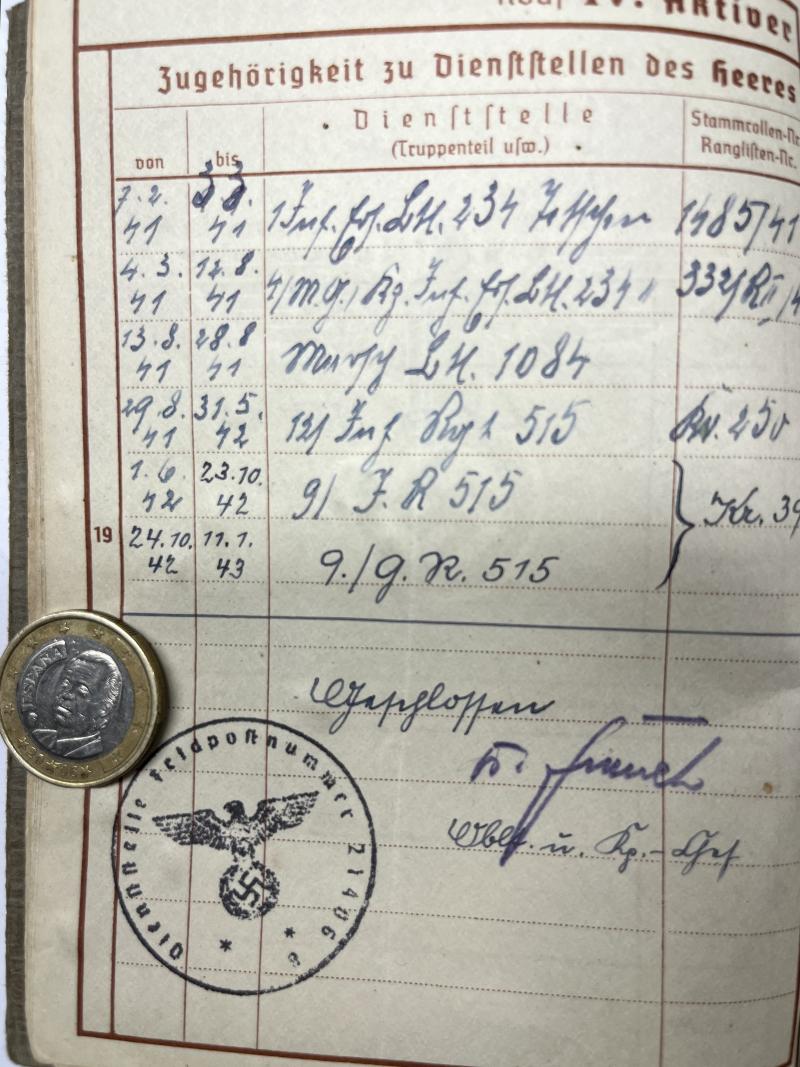 IV. Aktiver
Zugehörigkeit zu Dienststellen des Heeres
von
bis
Dienststelle
(Truppenteil usw.)
Stammrollen-Nr.
Ranglisten-Nr.
7.2. 41 3.3. 41 1 Inf. Ers. Btl. 234 1485/41
4.3. 41 12.8. 41 4/ M.G. Inf. Ers. Btl. 234 " 332/
13.8. 41 28.8 41 Marsch Btl. 1084
29.8. 41 31.5. 42 12/ Inf Rgt 515 250
1.6. 42 23.10. 42 9/ J. R 515
19 24.10. 42 11.1. 43 9./G. R. 515
Kr. 39
Geschlossen
Oblt. u. Kp.-Chef
Dienststelle Feldpostnummer 21406
ESPAÑA